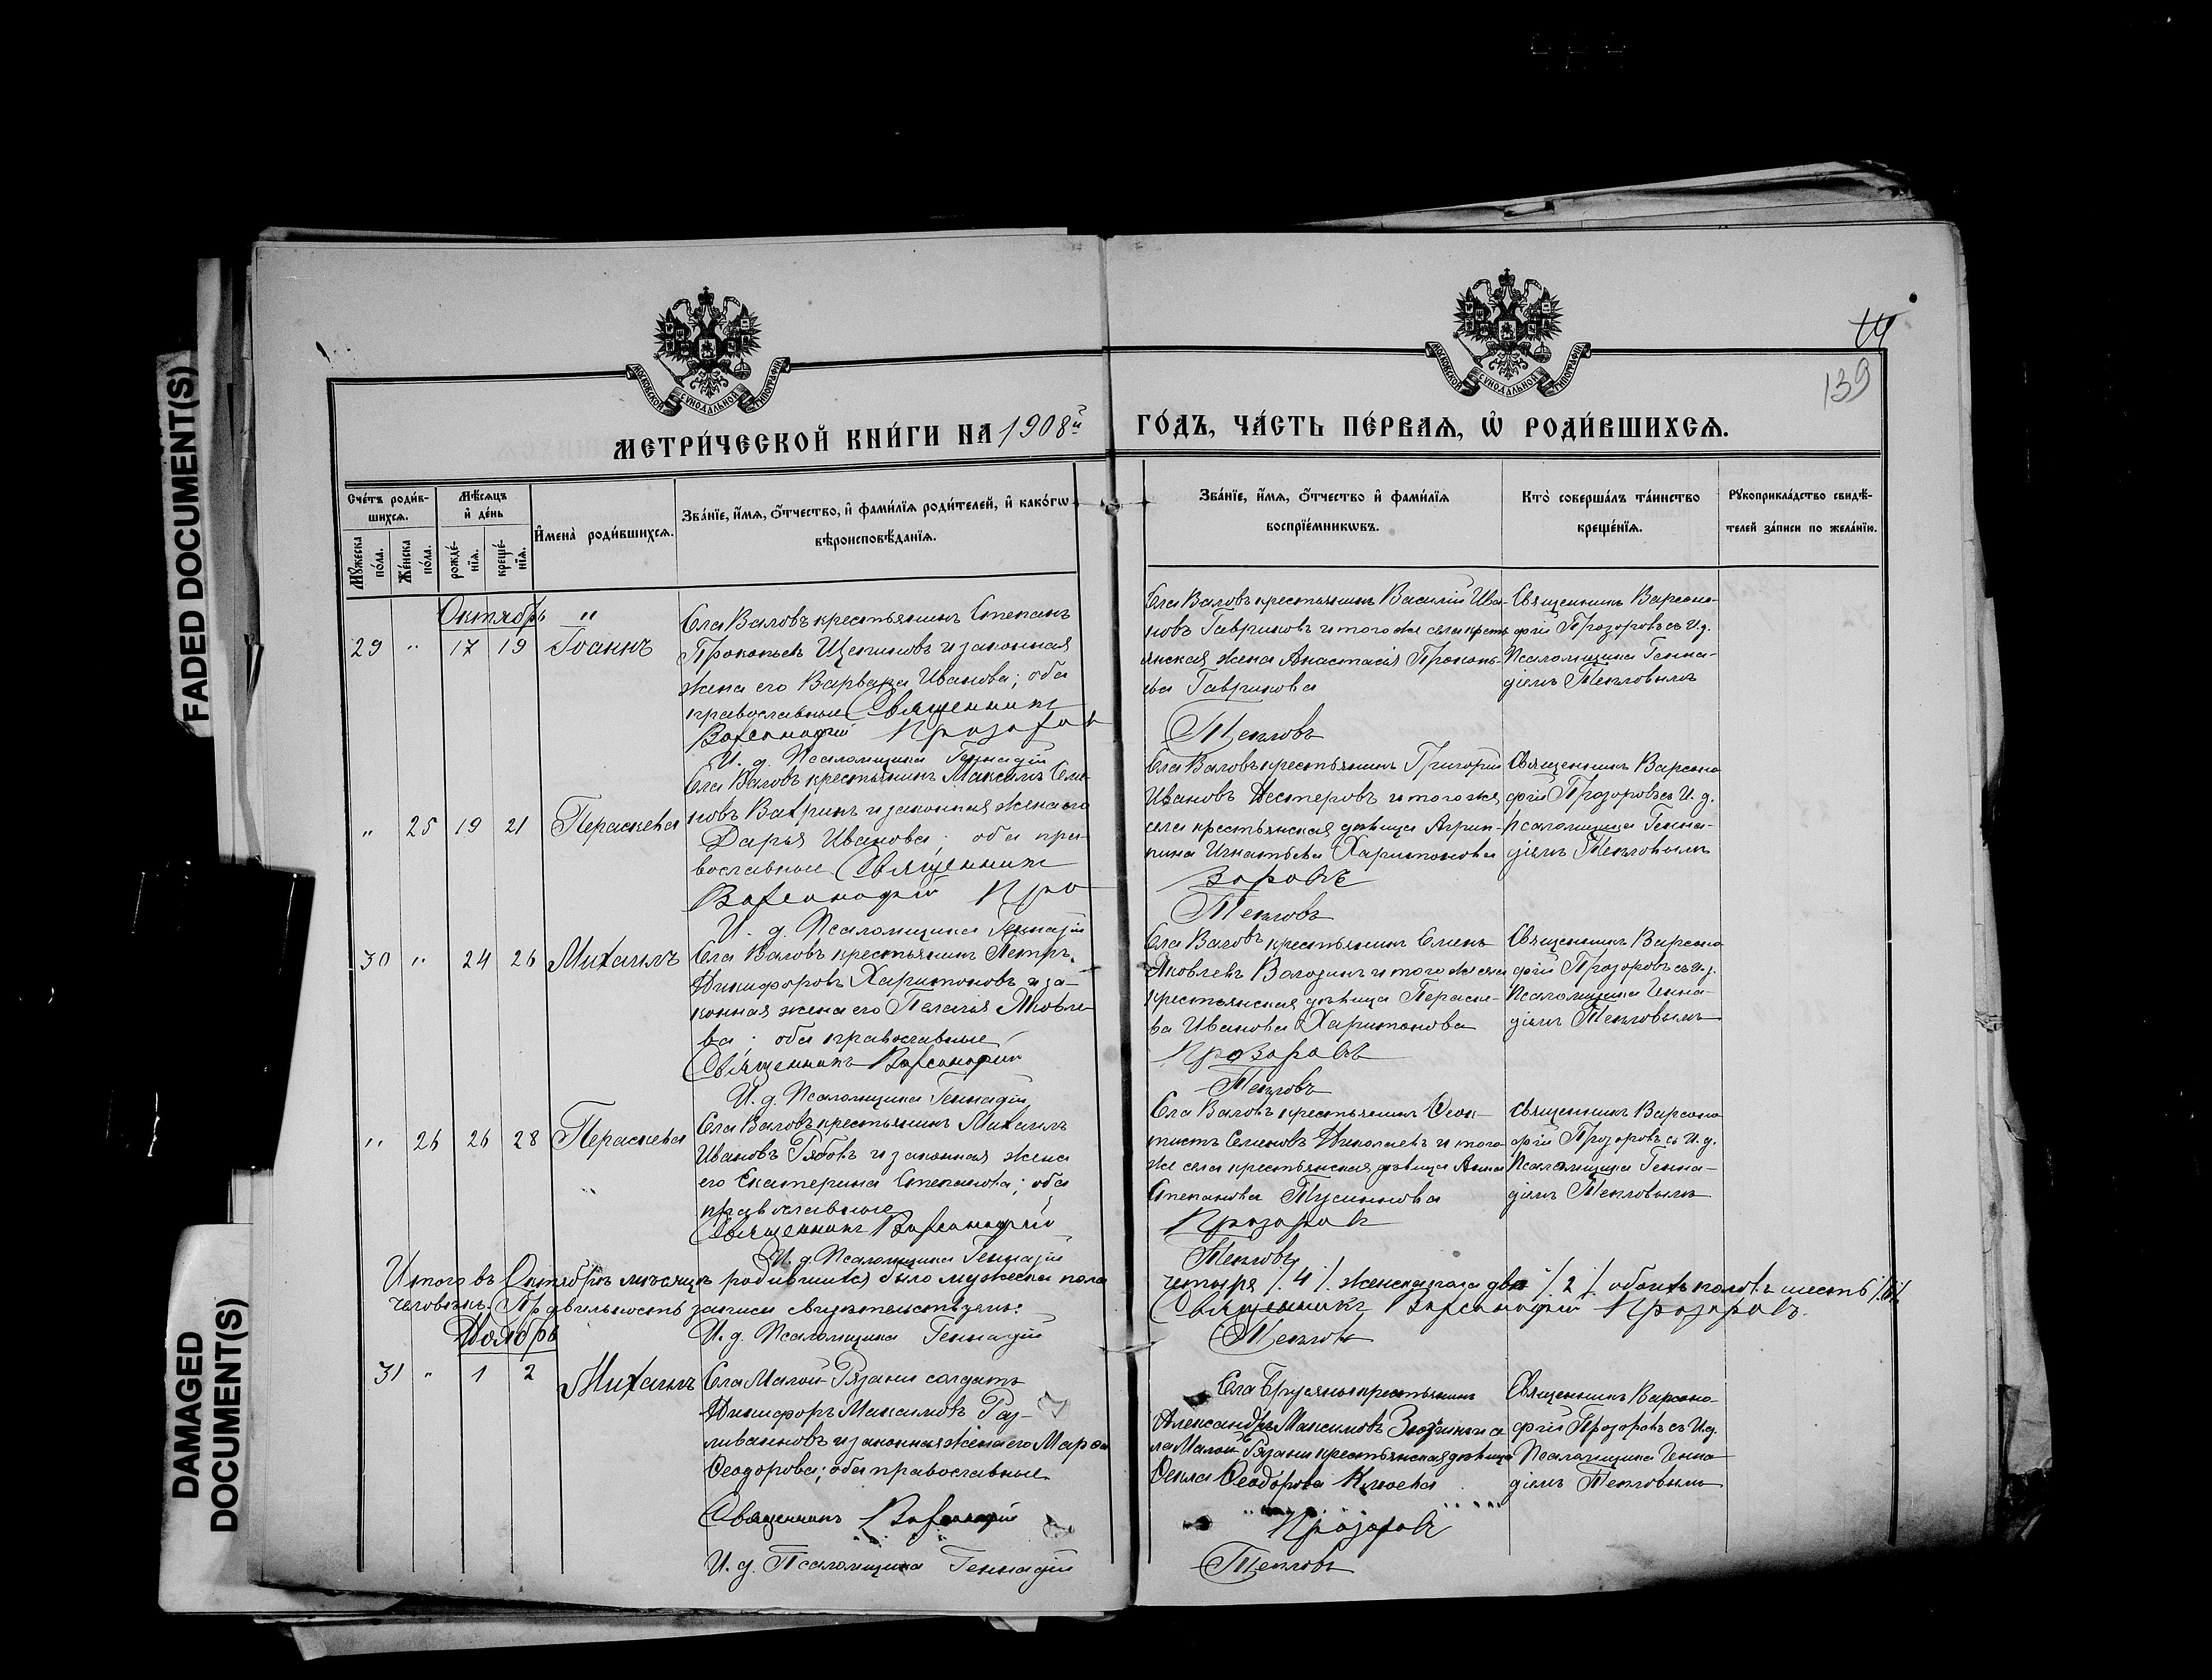 FADED DOCUMENT(S)
DAMAGED
DOCUMENT(S)
МОСКОВСКОЙ СУНОДАЛЬНОЙ ТИПОГРАФІИ
МОСКОВСКОЙ СУНОДАЛЬНОЙ ТИПОГРАФІИ
139
МЕТРИ́ЧЕСКОЙ КНИ́ГИ НА 1908й ГО́ДЪ, ЧА́СТЬ ПЕ́РВАѦ, Ѡ҆ РОДИ́ВШИХСѦ.
Сче́тъ роди́в-
шихсѧ.
Мꙋ́жеска по́ла.
Же́нска по́ла.
Мѣ́сѧцъ
и҆ де́нь
рожде́-
нїѧ.
креще́-
нїѧ.
И҆мена̀ роди́вшихсѧ.
Зва́нїе, и҆́мѧ, ѻ҆́тчество, и҆ фами́лїѧ роди́телей, и҆ како́гѡ
вѣроисповѣ́данїѧ.
Зва́нїе, и҆́мѧ, ѻ҆́тчество и҆ фами́лїѧ
воспрїе́мникѡвъ.
Кто̀ соверша́лъ та́инство
креще́нїѧ.
Рꙋкоприкла́дство свидѣ́-
телей за́писи по жела́нїю.
Октябрь "
29 " 17 19 Іоаннъ
Села Валовъ крестьянинъ Степанъ
Прокопьевъ Щепиловъ и законная
жена его Варвара Иванова; оба
православные Священникъ
Варсанофій Прозоровъ
И. д. Псаломщика Геннадій
Села Валовъ крестьянинъ Василій Ива-
новъ Гавриловъ и того же села кресть
янская жена Анастасія Прокопь-
ева Гаврилова
Тепловъ
Священникъ Варсоно-
фій Прозоровъ съ И. д.
Псаломщика Генна-
діемъ Тепловымъ
" 25 19 21 Параскева
Села Валовъ крестьянинъ Максимъ Семе-
новъ Вахринъ и законная жена его
Дарья Иванова; оба пра-
вославные Священникъ
Варсанофій Про
И. д. Псаломщика Геннадій
Села Валовъ крестьянинъ Григорій
Ивановъ Нестеровъ и того же
села крестьянская дѣвица Агрип-
пина Игнатьева Харитонова
зоровъ
Тепловъ
Священникъ Варсоно
фій Прозоровъ съ И. д.
Псаломщика Генна-
діемъ Тепловымъ
30 " 24 26 Михаилъ
Села Валовъ крестьянинъ Петръ
Никифоровъ Харитоновъ и за-
конная жена его Пелагія Яковле-
ва; оба православные
Священникъ Варсанофій
И. д. Псаломщика Геннадій
Села Валовъ крестьянинъ Семенъ
Яковлевъ Володинъ и того же села
крестьянская дѣвица Параске-
ва Иванова Харитонова
Прозоровъ
Тепловъ
Священникъ Варсоно
фій Прозоровъ съ И. д.
Псаломщика Генна-
діемъ Тепловымъ
" 26 26 28 Параскева
Села Валовъ крестьянинъ Михаилъ
Ивановъ Рябовъ и законная жена
его Екатерина Степанова; оба
православные
Священникъ Варсанофій
И. д. Псаломщика Геннадій
Села Валовъ крестьянинъ Ѳеок-
тистъ Семеновъ Николаевъ и того
же села крестьянская дѣвица Анна
Степанова
Прозоровъ
Тепловъ
Священникъ Варсоно
фій Прозоровъ съ И. д.
Псаломщика Генна-
діемъ Тепловымъ
Итого въ Октябрѣ мѣсяцѣ родившихся было мужеска пола четыре /.4/. женска пола два /.2/. обоихъ половъ шесть /.6/.
человѣкъ. Правильность записи свидѣтельствуемъ: Священникъ Варсанофій Прозоровъ.
И. д. Псаломщика Геннадій Тепловъ
Ноябрь
31 " 1 2 Михаилъ
Села Малой Рязани солдатъ
Никифоръ Максимовъ
и законная жена его Марѳа
Ѳеодорова; оба православные
Священникъ Варсанофій
И. д. Псаломщика Геннадій
Села Брусяны крестьянинъ
Александръ Максимовъ и се
ла Малой Рязани крестьянская дѣвица
Ѳекла Ѳеодорова Клюева
Прозоровъ
Тепловъ
Священникъ Варсоно-
фій Прозоровъ съ И. д.
Псаломщика Генна
діемъ Тепловымъ